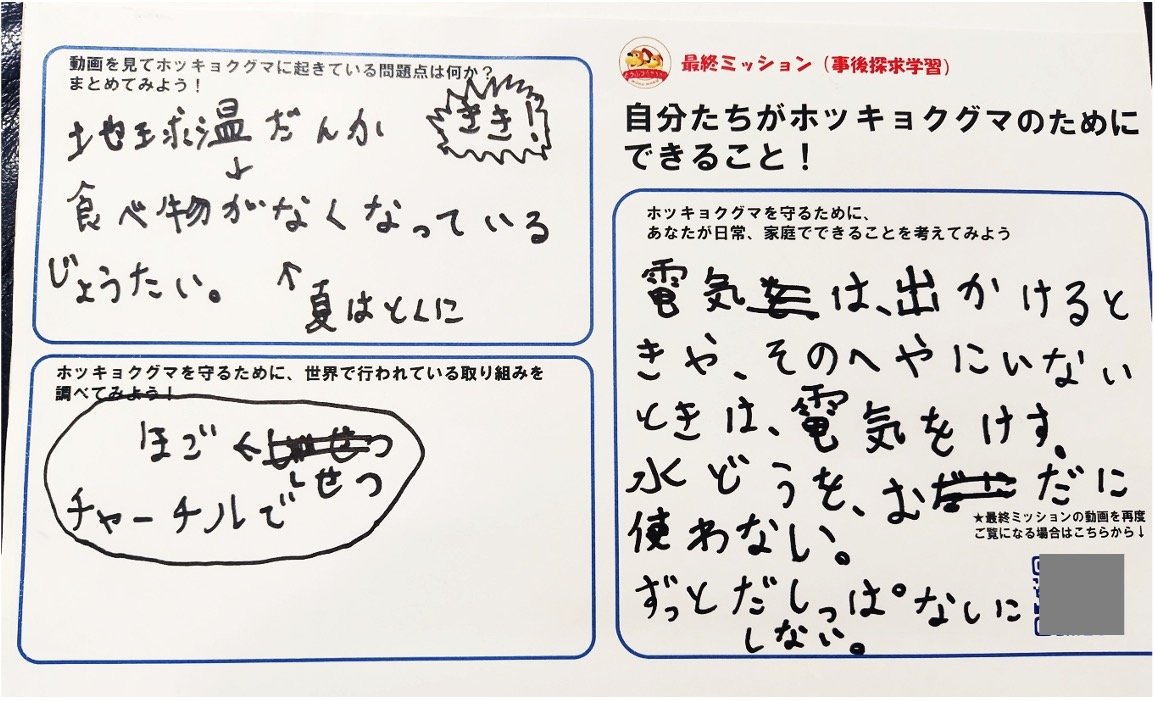 動画を見てホッキョクグマに起きている問題点は何か？
まとめてみよう！
きき!
地球温だんか
↓
食べ物がなくなっている
じょうたい。
↑夏はとくに
ホッキョクグマを守るために、世界で行われている取り組みを
調べてみよう！
ほご←
しせつ
チャーチルで
最終ミッション（事後探求学習）
自分たちがホッキョクグマのために
できること！
ホッキョクグマを守るために、
あなたが日常、家庭でできることを考えてみよう
電気は、出かけると
きや、そのへやにいない
ときは、電気をけす。
水どうを、むだに
使わない。
ずっとだしっぱなしに
しない。
★最終ミッションの動画を再度
ご覧になる場合はこちらから↓